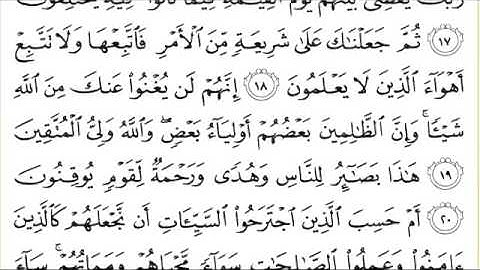 رَبَّكَ يَقْضِى بَيْنَهُمْ يَوْمَ ٱلْقِيَٰمَةِ فِيمَا كَانُوا۟ فِيهِ يَخْتَلِفُونَ
١٧ ثُمَّ جَعَلْنَٰكَ عَلَىٰ شَرِيعَةٍ مِّنَ ٱلْأَمْرِ فَٱتَّبِعْهَا وَلَا نَتَّبِعْ
أَهْوَآءَ ٱلَّذِينَ لَا يَعْلَمُونَ ١٨ إِنَّهُمْ لَن يُغْنُوا۟ عَنكَ مِنَ ٱللَّهِ
شَيْـًٔا ۚ وَإِنَّ ٱلظَّٰلِمِينَ بَعْضُهُمْ أَوْلِيَآءُ بَعْضٍ ۖ وَٱللَّهُ وَلِىُّ ٱلْمُتَّقِينَ
١٩ هَٰذَا بَصَٰٓئِرُ لِلنَّاسِ وَهُدًى وَرَحْمَةٌ لِّقَوْمٍ يُوقِنُونَ
٢٠ أَمْ حَسِبَ ٱلَّذِينَ ٱجْتَرَحُوا۟ ٱلسَّيِّـَٔاتِ أَن نَّجْعَلَهُمْ كَٱلَّذِينَ
ءَامَنُوا۟ وَعَمِلُوا۟ ٱلصَّٰلِحَٰتِ سَوَآءً مَّحْيَاهُمْ وَمَمَاتُهُمْ ۚ سَآءَ